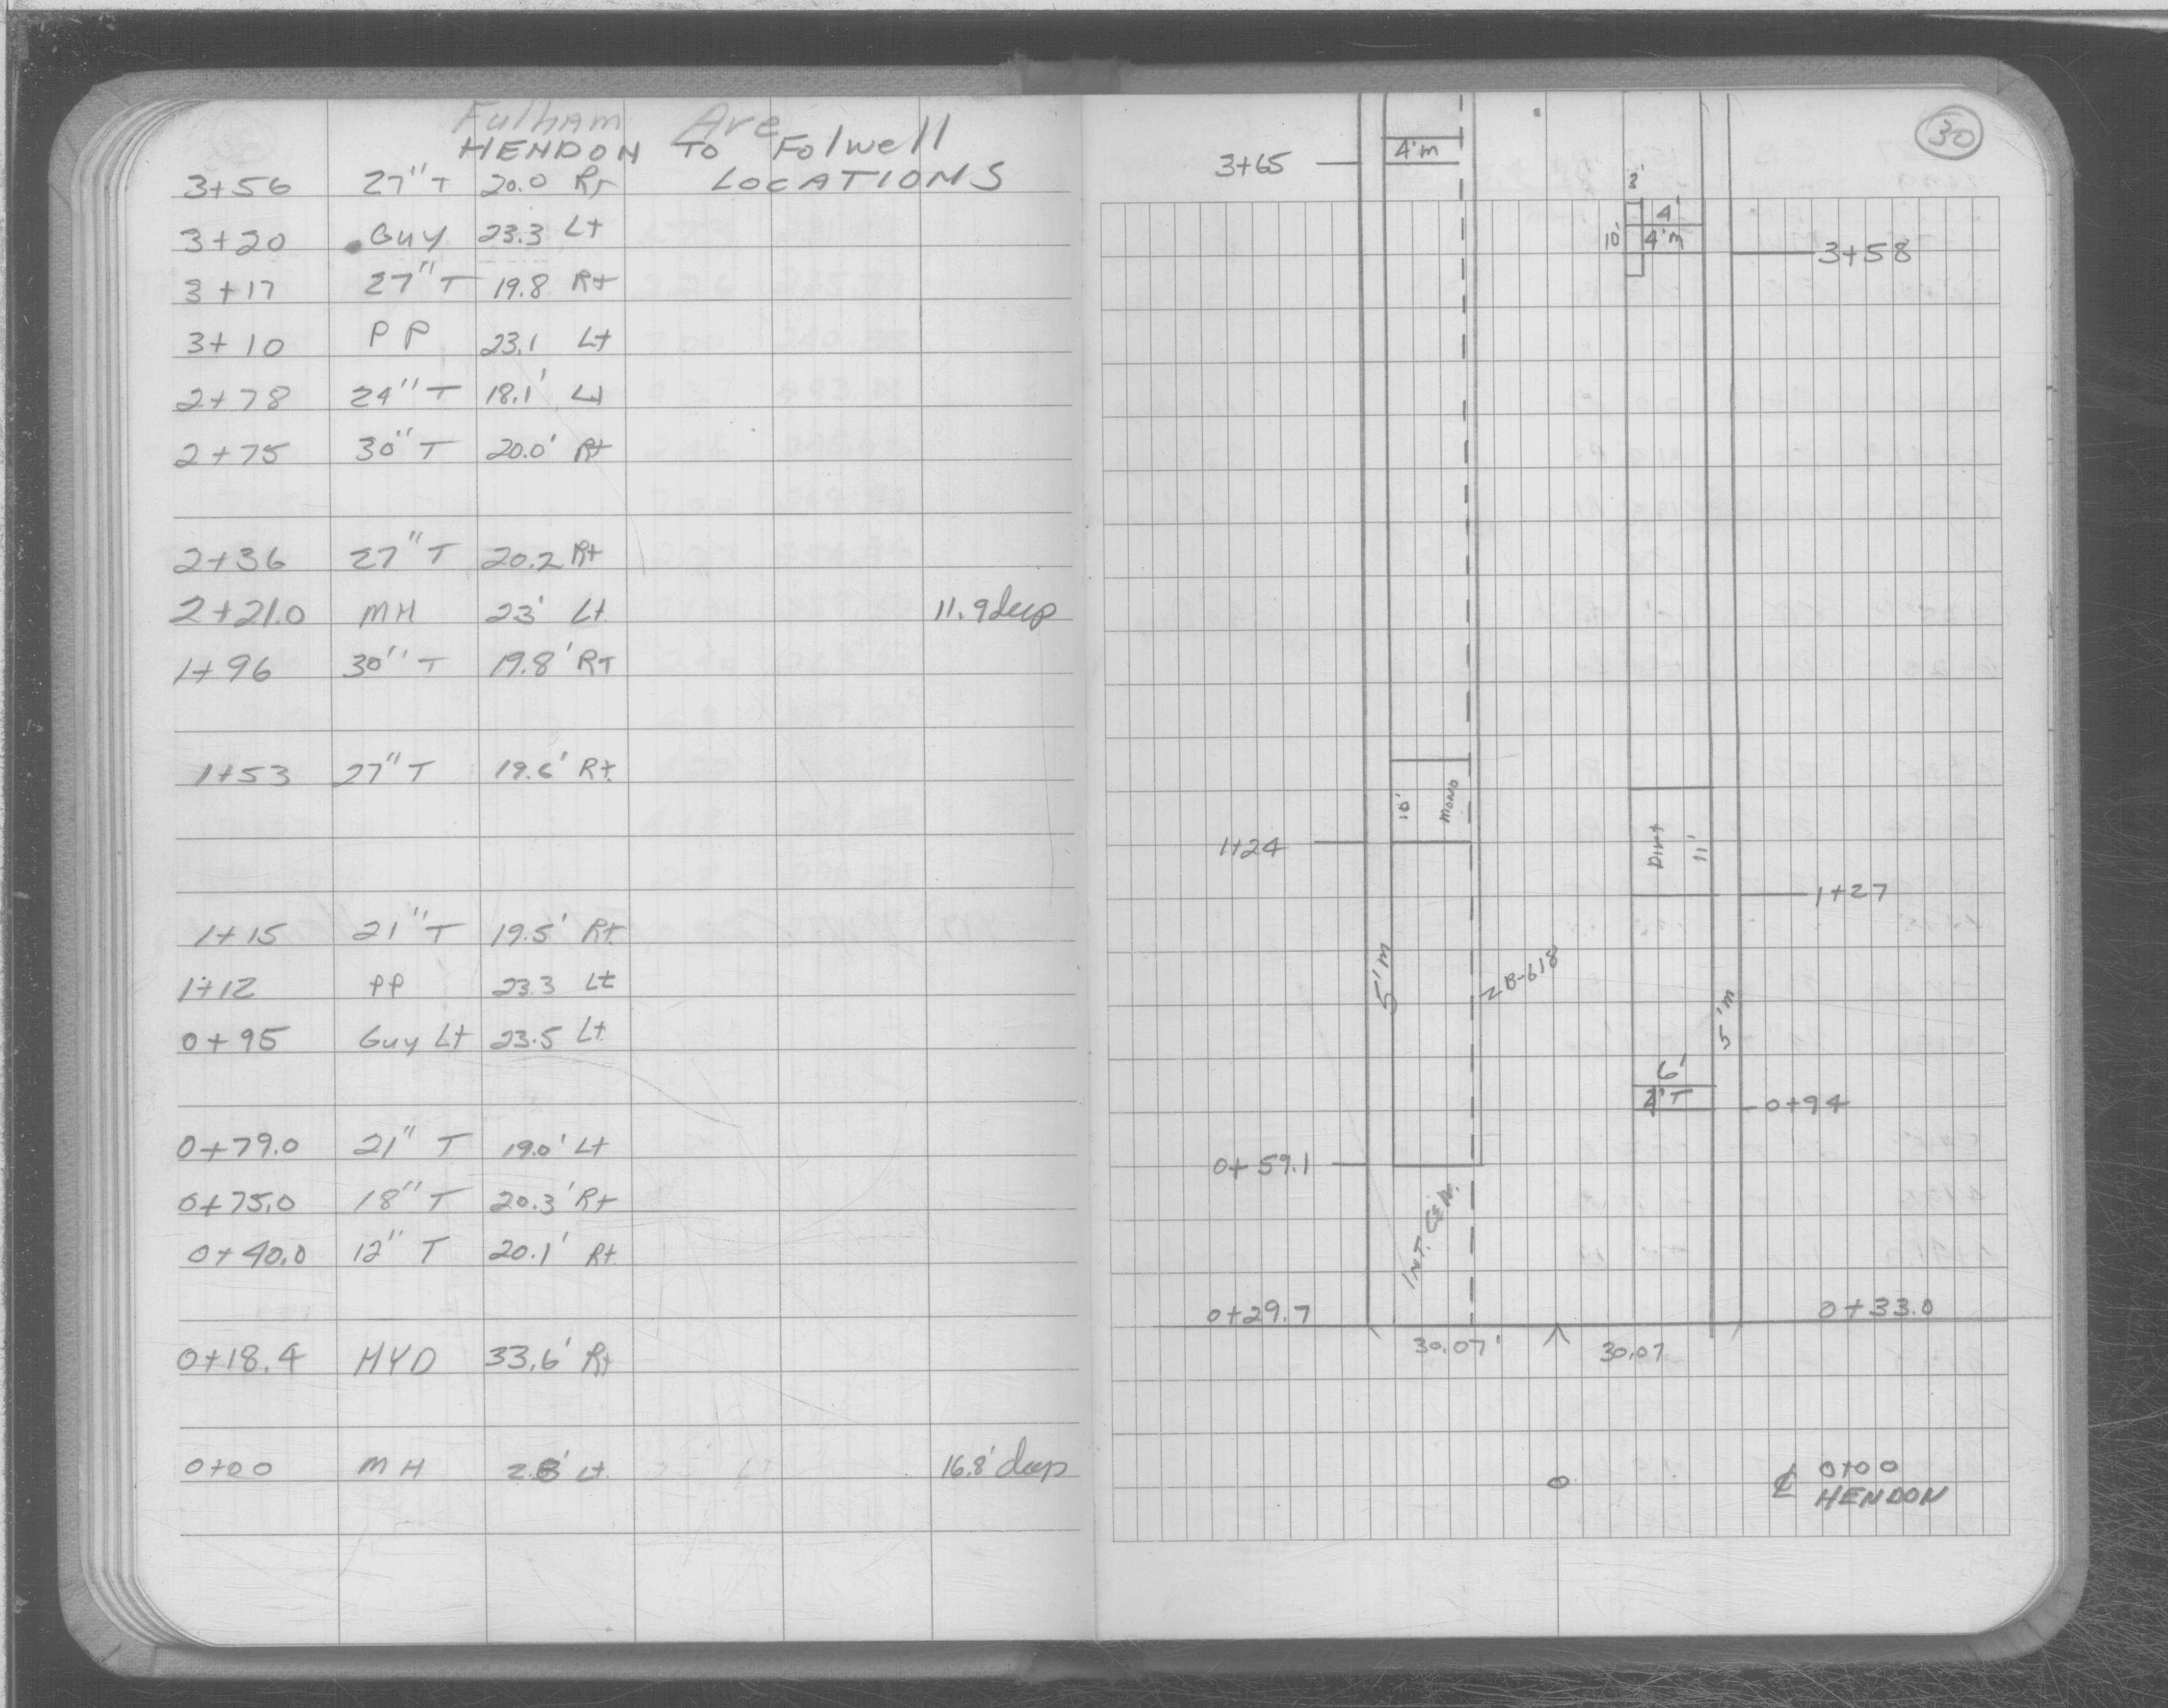 Fulham Ave
HENDON TO Folwell
LOCATIONS
3+56 27" T 20.0 Rt
3+20 Guy 23.3 Lt
3+17 27" T 19.8 Rt
3+10 PP 23.1 Lt
2+78 24" T 18.1' Lt
2+75 30" T 20.0' Rt
2+36 27" T 20.2 Rt
2+21.0 MH 23' Lt. 11.9 deep
1+96 30" T 19.8' RT
1+53 27" T 19.6' Rt.
1+15 21" T 19.5' Rt
1+12 PP 23.3 Lt
0+95 Guy Lt 23.5 Lt
0+79.0 21" T 19.0' Lt
0+75.0 18" T 20.3' Rt
0+40.0 12" T 20.1' Rt.
0+18.4 HYD 33.6' Rt
0+00 MH Lt. 16.8' deep
30
3+65 4'm
3'
4'
10' 4'm 3+58
10' MONO
1+24
Dirt 11'
1+27
5'm
2B-618
5'm
6'
T 0+94
0+59.1
INT.
0+29.7 0+33.0
30.07' 30.07
0+00
HENDON